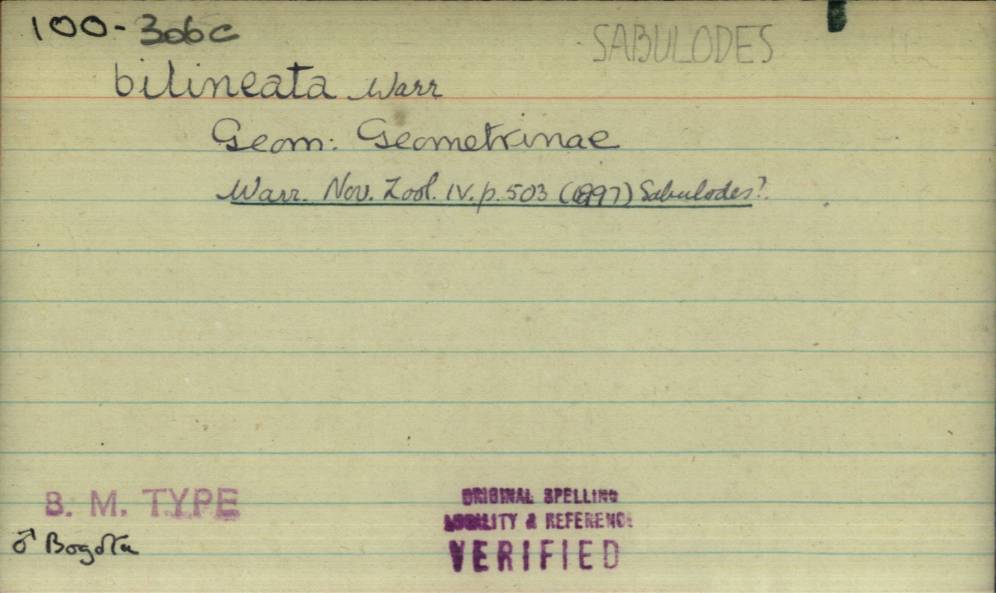 100-306c
SABULODES
bilineata Warr
Geom: Geometrinae
Warr. Nov. Zool. IV. p. 503 (1897) Sabulodes?.
B. M. TYPE
♂ Bogota
ORIGINAL SPELLING
LOCALITY & REFERENCE
VERIFIED